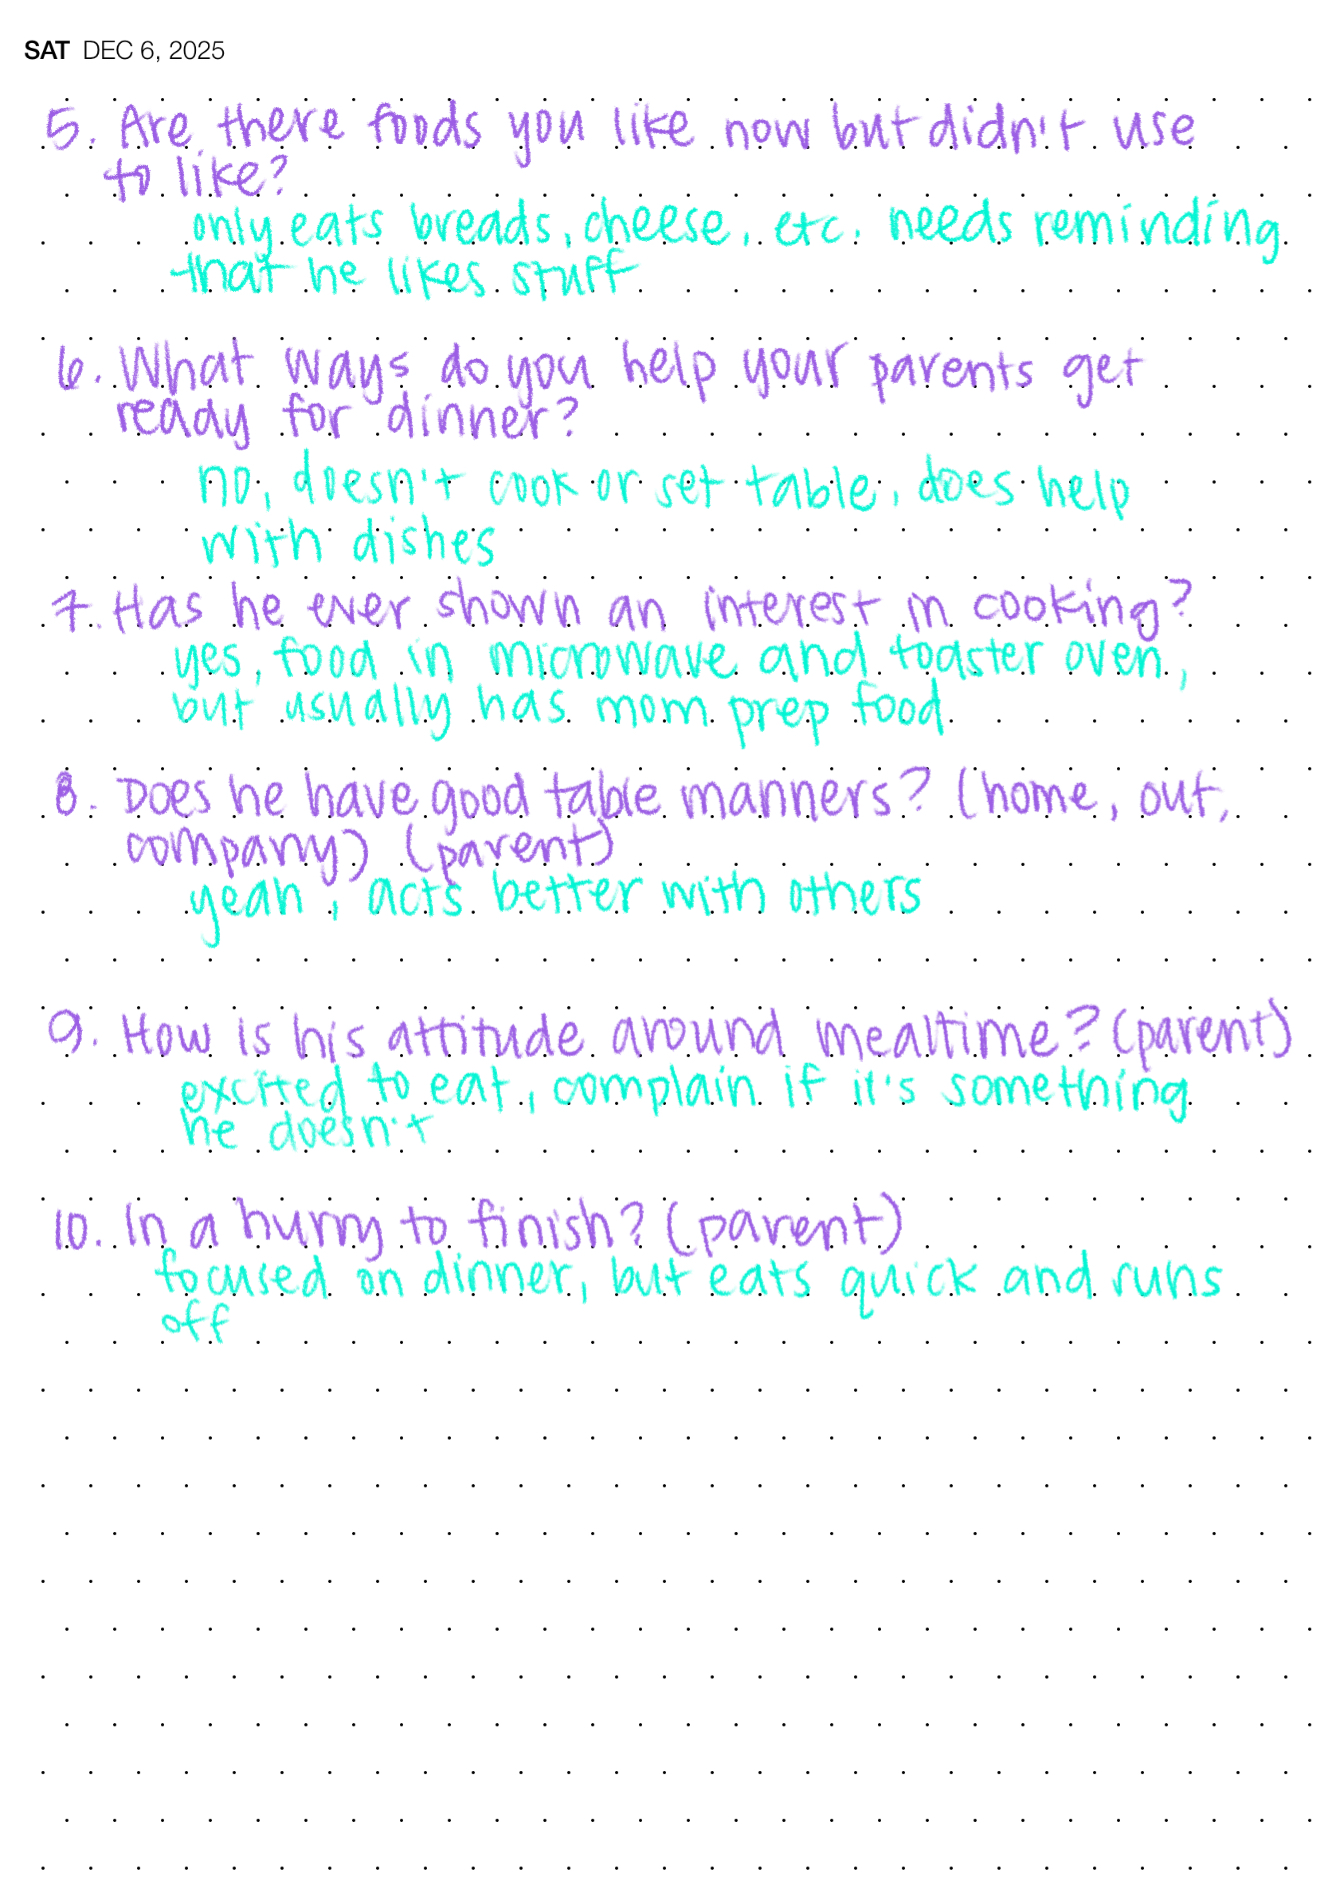 SAT DEC 6, 2025
5. Are there foods you like now but didn't use
to like?
only eats breads, cheese, etc. needs reminding
that he likes stuff
6. What ways do you help your parents get
ready for dinner?
no, doesn't cook or set table, does help
with dishes
7. Has he ever shown an interest in cooking?
yes, food in microwave and toaster oven,
but usually has mom prep food
8. Does he have good table manners? (home, out,
company) (parent)
yeah, acts better with others
9. How is his attitude around mealtime? (parent)
excited to eat, complain if it's something
he doesn't
10. In a hurry to finish? (parent)
focused on dinner, but eats quick and runs
off